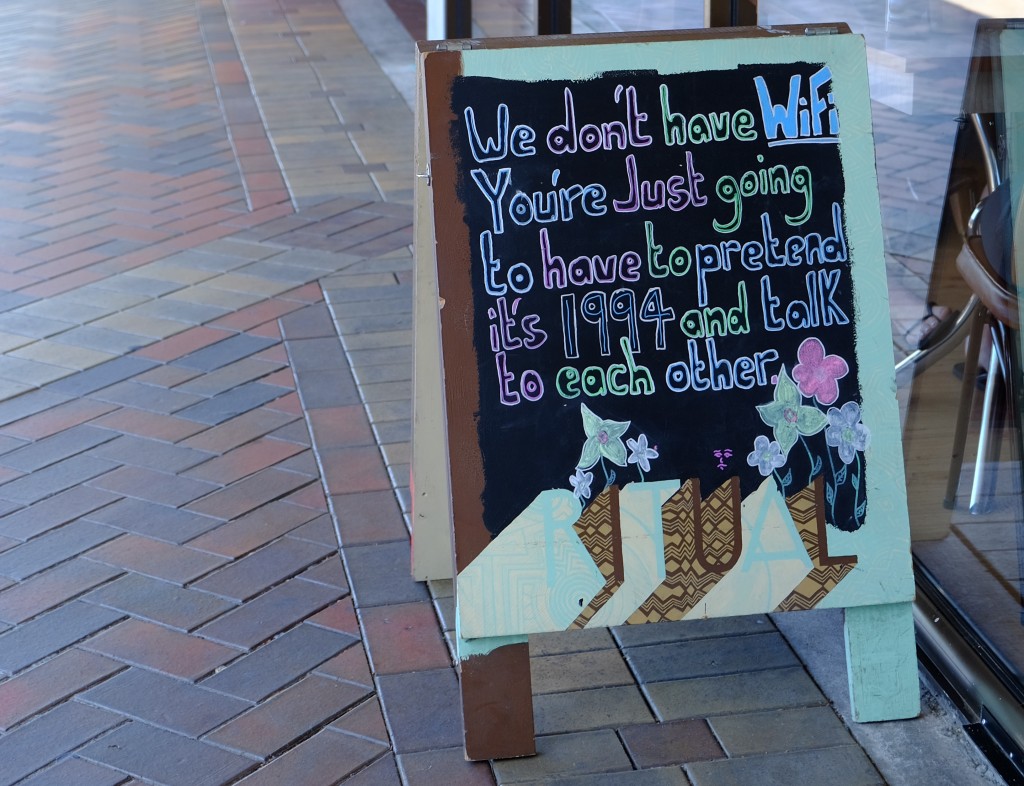 We don't have WiFi
You're Just going
to have to pretend
it's 1994 and talk
to each other.
RITUAL